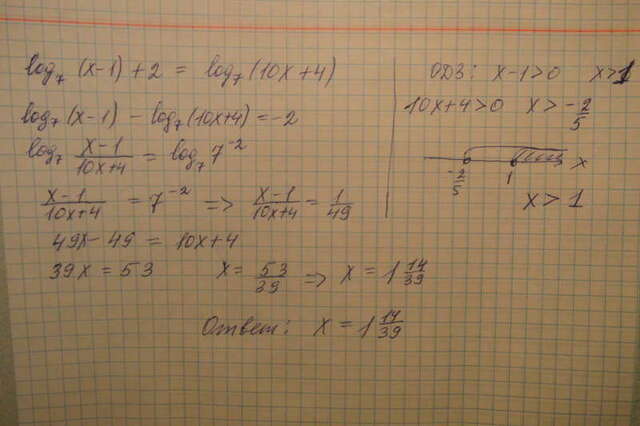 log₇(x-1)+2 = log₇(10x+4)
log₇(x-1) - log₇(10x+4) = -2
log₇ (x-1)/(10x+4) = log₇ 7⁻²
(x-1)/(10x+4) = 7⁻² => (x-1)/(10x+4) = 1/49
49x-49 = 10x+4
39x = 53 x = 53/39 => x = 1 14/39
Ответ: x = 1 14/39
ОДЗ: x-1>0 x>1
10x+4>0 x> -2/5
-2/5 1 x
x>1